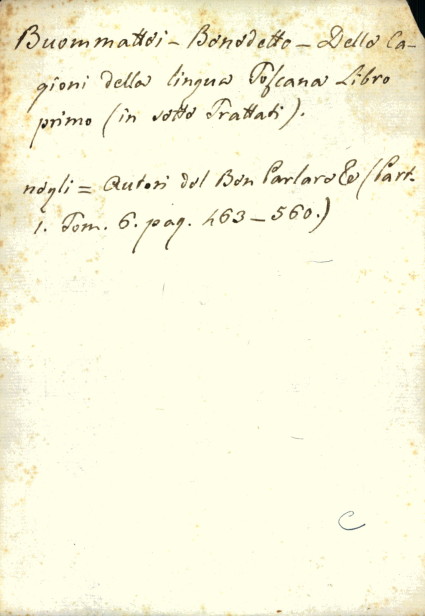 Buommattei - Benedetto - Delle Ca-
gioni della lingua Toscana Libro
primo (in sette Trattati).
negli = Autori del Ben Parlare &c (Part.
1. Tom. 6. pag. 463 - 560.)
C